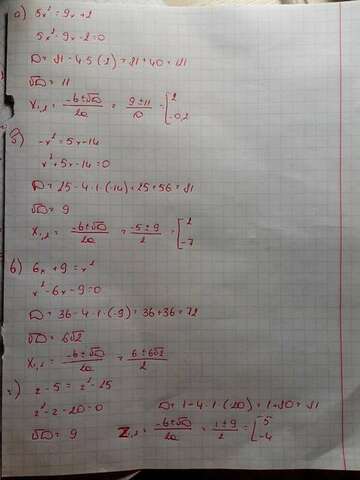 а) 5x² = 9x + 2
5x² - 9x - 2 = 0
D = 81 - 4·5(-2) = 81 + 40 = 121
√D = 11
x₁,₂ = (-b ± √D)/2a = (9 ± 11)/10 = [2; -0,2
б) -x² = 5x - 14
x² + 5x - 14 = 0
D = 25 - 4·1·(-14) = 25 + 56 = 81
√D = 9
x₁,₂ = (-b ± √D)/2a = (-5 ± 9)/2 = [2; -7
в) 6x + 9 = x²
x² - 6x - 9 = 0
D = 36 - 4·1·(-9) = 36 + 36 = 72
√D = 6√2
x₁,₂ = (-b ± √D)/2a = (6 ± 6√2)/2
г) z - 5 = z² - 25
z² - z - 20 = 0 D = 1 - 4·1·(-20) = 1 + 80 = 81
√D = 9 z₁,₂ = (-b ± √D)/2a = (1 ± 9)/2 = [5; -4